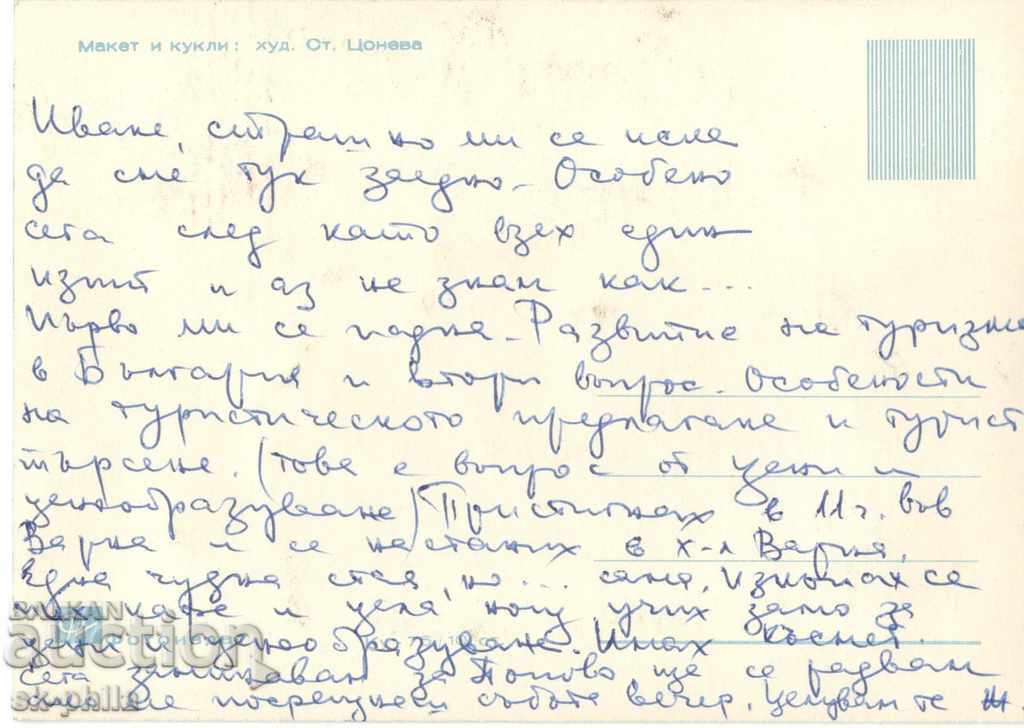 Макет и кукли: худ. Ст. Цонева
Иване, страшно ми се иска
да сме тук заедно. Особено
сега след като взех един
изпит и аз не знам как...
Първо ми се падна. Развитие на туризма
в България и втори въпрос. Особености
на туристическото предлагане и турист.
търсене. (това е въпрос от цени и
ценообразуване) Пристигнах в 11 ч. във
Варна и се настаних в х-л Варна,
Една чудна стая, но... сама. Изкъпах се
кафе и цяла нощ учих само за
цени и ценообразуване. Имах късмет.
Сега заминавам за Попово, ще се радвам
да ме посрещнеш събота вечер. Целувам те
BALKAN
auction
sk-phila